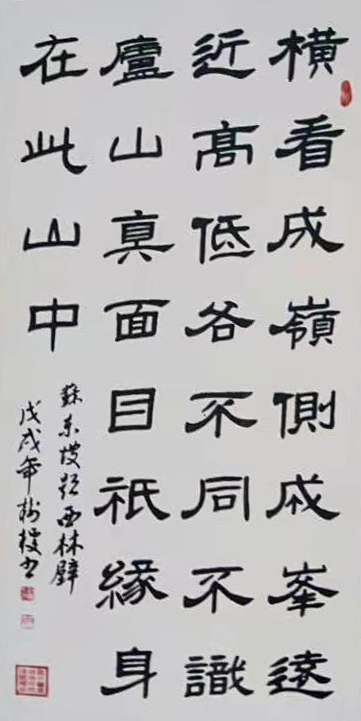 橫看成嶺側成峯遠
近髙低各不同不識
廬山真面目祇緣身
在此山中
蘇東坡題西林壁
戊戌年树书